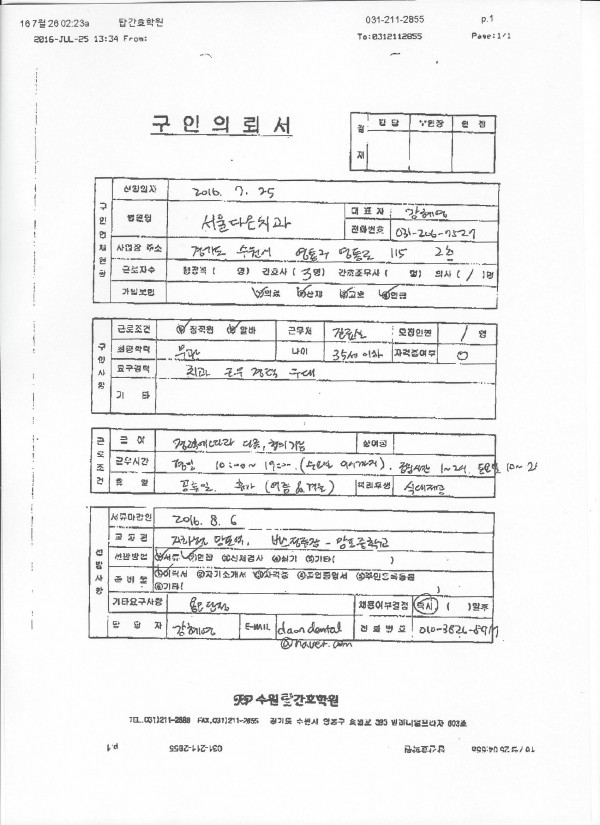 16 7월 26 02:23a 탑간호학원 031-211-2855 p.1
2016-JUL-25 13:34 From: To:0312112855 Page:1/1
구인의뢰서
결재 담당 부원장 원장
구인업체현황
신청일자 2016. 7. 25
병원명 서울다온치과 대표자 강혜영
전화번호 031-206-7527
사업장 주소 경기도 수원시 영통구 영통로 115 2층
근로자수 현장직 ( 명) 간호사 (3명) 간호조무사 ( 명) 의사 (1)명
가입보험 의료 산재 고보 연금
구인사항
근로조건 정직원 알바 근무처 모집인원 1명
최종학력 무관 나이 35세 이하 자격증여부 O
요구경력 치과 근무 경력 우대
기타
근로조건
급여 경력에 따라 다름, 협의가능 상여금
근무시간 평일 10:00~19:00. (수요일 9시까지). 점심시간 1~2시. 토요일 10~2
휴일 공휴일. 휴가 (여름 및 겨울) 복리후생 식대제공
선발사항
서류마감일 2016. 8. 6
교통편 지하철 망포역. 버스정류장 - 망포중학교
선발방법 서류 면접 ③신체검사 ④실기 ⑤기타( )
준비물 이력서 ②자기소개서 ③자격증 ④졸업증명서 ⑤주민등록등본
⑥기타( )
기타요구사항 용모단정 채용여부결정 즉시 ( )일후
담당자 강혜영 E-MAIL daondental 전화번호
@naver.com
수원탑간호학원
TEL.031)211-2888 FAX.031)211-2855 경기도 수원시 영통구
p.1 031-211-2855 탑간호학원